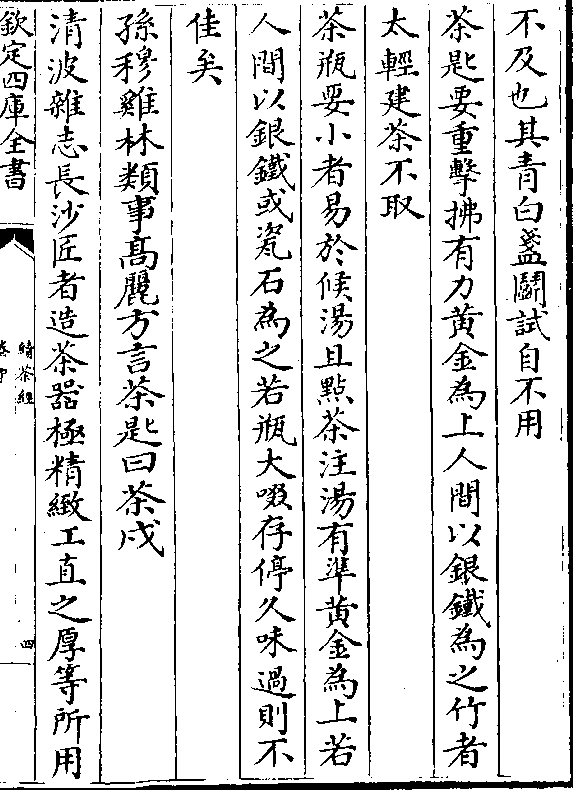 不及也其青白盞鬭試自不用
茶匙要重擊拂有力黃金為上人間以銀鐵為之竹者
太輕建茶不取
茶瓶要小者易於候湯且點茶注湯有準黃金為上若
人間以銀鐵或瓷石為之若瓶大啜存停久味過則不
佳矣
孫穆雞林類事高麗方言茶匙曰茶戍
清波雜志長沙匠者造茶器極精緻工直之厚等所用
欽定四庫全書
續茶經
四